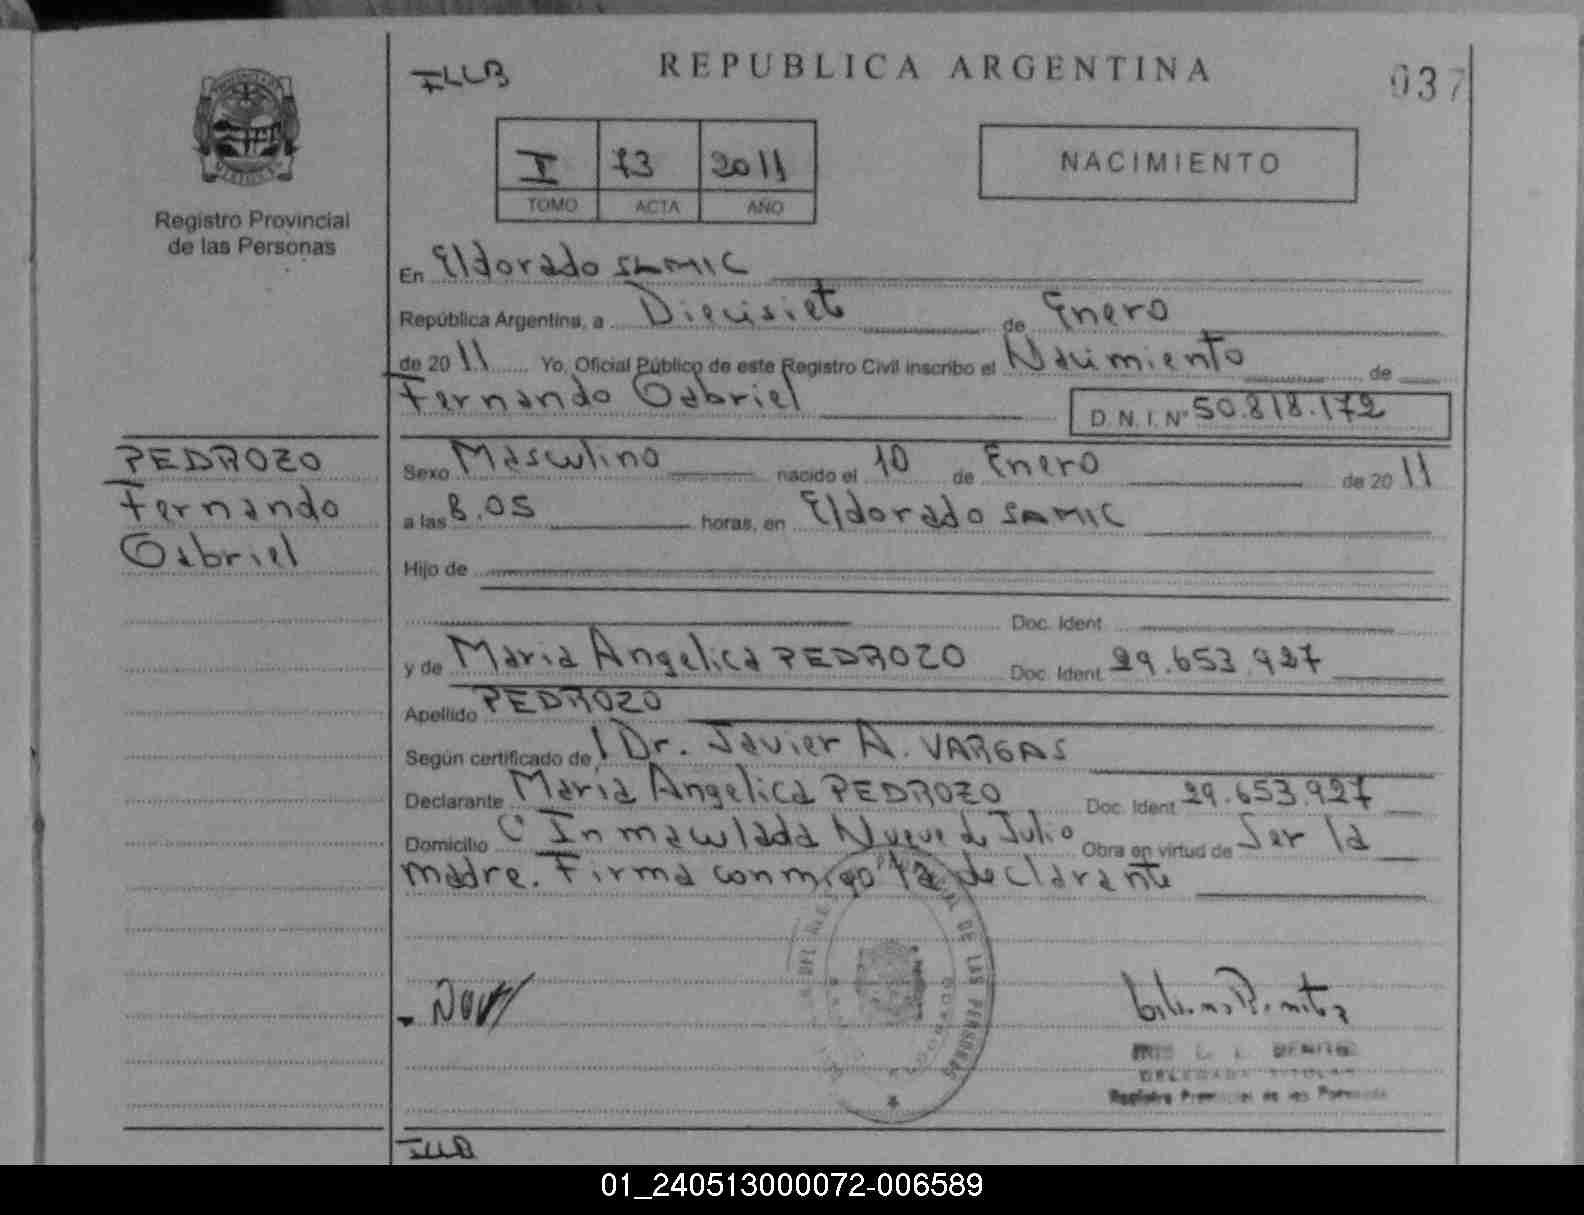 REPUBLICA ARGENTINA
037
ILLB
I 73 2011
TOMO ACTA AÑO
NACIMIENTO
Registro Provincial
de las Personas
En Eldorado SAMIC
República Argentina, a Diecisiete de Enero
de 2011 Yo, Oficial Público de este Registro Civil inscribo el Nacimiento de
Fernando Gabriel D. N. I. Nº 50.818.172
PEDROZO
Fernando
Gabriel
Sexo Masculino nacido el 10 de Enero de 2011
a las 8.05 horas, en Eldorado SAMIC
Hijo de
Doc. Ident.
y de Maria Angelica PEDROZO Doc. Ident. 29.653.927
Apellido PEDROZO
Según certificado del Dr. Javier A. VARGAS
Declarante Maria Angelica PEDROZO Doc. Ident. 29.653.927
Domicilio Cº Inmaculada Nueve de Julio Obra en virtud de Ser la
madre. Firma conmigo la declarante
DE LAS PERSONAS
BENITEZ
DELEGADA TITULAR
Registro Provincial de las Personas
ILLB
01_240513000072-006589